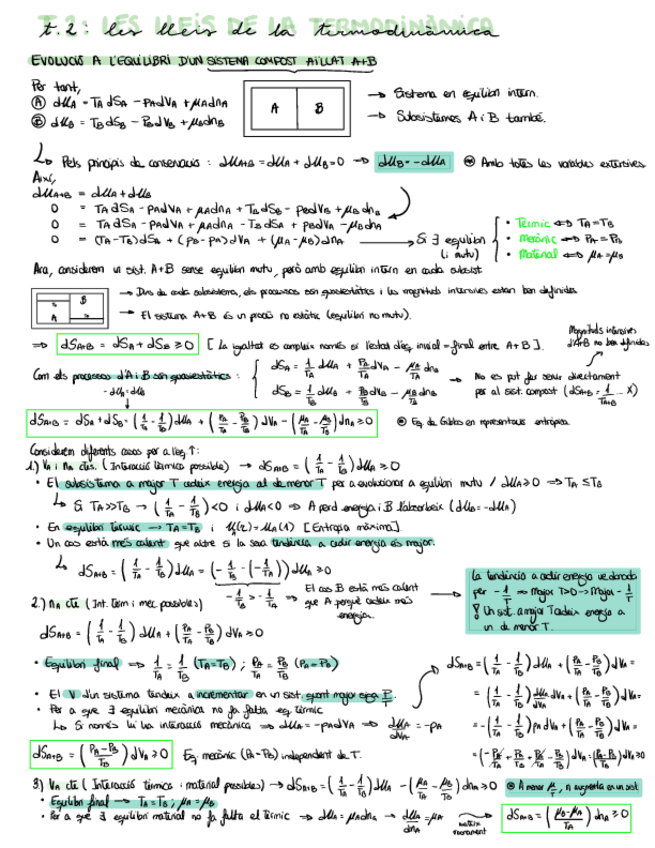 t.2: les lleis de la termodinàmica
EVOLUCIÓ A L'EQUILIBRI D'UN SISTEMA COMPOST AÏLLAT A+B
Per tant,
Ⓐ dU_A = T_A dS_A − p_A dV_A + μ_A dn_A
Ⓑ dU_B = T_B dS_B − P_B dV_B + μ_B dn_B
A B
→ Sistema en equilibri intern.
→ Subsistemes A i B també.
↳ Pels principis de conservació : dU_A+B = dU_A + dU_B = 0 → dU_B = −dU_A ⊛ Amb totes les variables extensives
Així,
dU_A+B = dU_A + dU_B
0 = T_A dS_A − p_A dV_A + μ_A dn_A + T_B dS_B − p_B dV_B + μ_B dn_B
0 = T_A dS_A − p_A dV_A + μ_A dn_A − T_B dS_A + p_B dV_A − μ_B dn_A
0 = (T_A−T_B) dS_A + (p_B−p_A) dV_A + (μ_A−μ_B) dn_A → Si ∃ equilibri (i mutu)
• Tèrmic ⇔ T_A = T_B
• Mecànic ⇔ P_A = P_B
• Material ⇔ μ_A = μ_B
Ara, considerem un sist. A+B sense equilibri mutu, però amb equilibri intern en cada subsist.
B
A
→ Dins de cada subsistema, els processos són quasiestàtics i les magnituds intensives estan ben definides
→ El sistema A+B és un procés no estàtic (equilibri no mutu).
⇒ dS_A+B = dS_A + dS_B ≥ 0 [La igualtat es compleix només si l'estat d'eq. inicial = final entre A+B].
Magnituds intensives d'A+B no ben definides
Com els processos d'A i B són quasiestàtics :
dS_A = 1/T_A dU_A + P_A/T_A dV_A − μ_A/T_A dn_A
dS_B = 1/T_B dU_B + P_B/T_B dV_B − μ_B/T_B dn_B
→ No es pot fer servir directament per al sist. compost (dS_A+B = 1/T_A+B ... X)
−dU_A = dU_B
dS_A+B = dS_A + dS_B = (1/T_A − 1/T_B) dU_A + (P_A/T_A − P_B/T_B) dV_A − (μ_A/T_A − μ_B/T_B) dn_A ≥ 0 ⊛ Eq. de Gibbs en representació entròpica.
Considerem diferents casos per a l'eq ↑:
1.) V_A i n_A ctes. (Interacció tèrmica possible) → dS_A+B = (1/T_A − 1/T_B) dU_A ≥ 0
• El subsistema a major T cedeix energia al de menor T per a evolucionar a equilibri mutu / dU_A ≥ 0 ⇒ T_A ≤ T_B
↳ Si T_A >> T_B → (1/T_A − 1/T_B) < 0 i dU_A < 0 ⇒ A perd energia i B l'absorbeix (dU_B = −dU_A)
• En equilibri tèrmic → T_A = T_B i [Entropia màxima].
• Un cos està més calent que altre si la seva tendència a cedir energia és major.
↳ dS_A+B = (1/T_A − 1/T_B) dU_A = (−1/T_B − (−1/T_A)) dU_A ≥ 0
−1/T_B > −1/T_A ⇒ El cos B està més calent que A perquè cedeix més energia.
La tendència a cedir energia ve donada per −1/T ⇒ Major T>0 → Major −1/T
! Un sist. a major T cedeix energia a un de menor T.
2.) n_A cte (Int. tèrm i mec possibles)
dS_A+B = (1/T_A − 1/T_B) dU_A + (P_A/T_A − P_B/T_B) dV_A ≥ 0
• Equilibri final ⇒ 1/T_A = 1/T_B (T_A = T_B) ; P_A/T_A = P_B/T_B (P_A = P_B)
• El V d'un sistema tendeix a incrementar en un sist. quant major siga P/T.
• Per a que ∃ equilibri mecànic no fa falta eq. tèrmic
↳ Si només hi ha interacció mecànica ⇒ dU_A = −p_A dV_A ⇒ dU_A/dV_A = −p_A
dS_A+B = (1/T_A − 1/T_B) dU_A + (P_A/T_A − P_B/T_B) dV_A =
= (1/T_A − 1/T_B) dU_A/dV_A dV_A + (P_A/T_A − P_B/T_B) dV_A =
= −(1/T_A − 1/T_B) p_A dV_A + (P_A/T_A − P_B/T_B) dV_A =
= (−P_A/T_A + P_A/T_B + P_A/T_A − P_B/T_B) dV_A = (P_A−P_B/T_B) dV_A ≥ 0
dS_A+B = (P_A−P_B/T_B) dV_A ≥ 0 Eq. mecànic (P_A = P_B) independent de T.
3.) V_A cte (Interacció tèrmica i material possibles) → dS_A+B = (1/T_A − 1/T_B) dU_A − (μ_A/T_A − μ_B/T_B) dn_A ≥ 0 ⊛ A menor μ/T, n augmenta en un sist.
• Equilibri final → T_A = T_B ; μ_A = μ_B
• Per a que ∃ equilibri material no fa falta el tèrmic ⇒ dU_A = μ_A dn_A → dU_A/dn_A = μ_A → mateix raonament dS_A+B = (μ_B−μ_A/T_A) dn_A ≥ 0